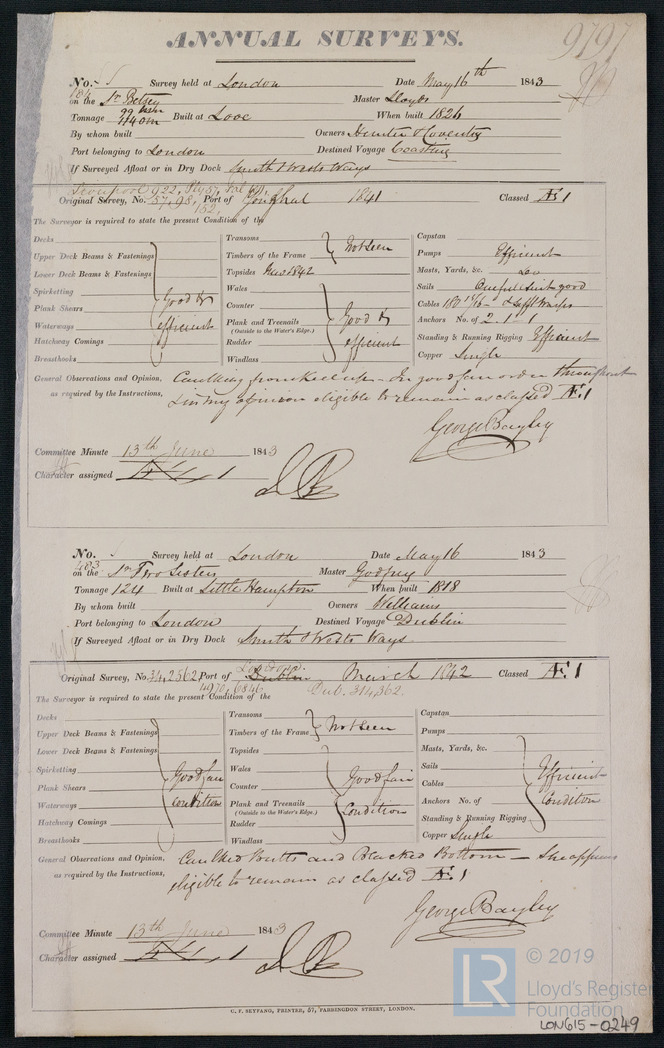 9797
ANNUAL SURVEYS.
No. Survey held at London Date May 16th 1843
184
on the Sr Betsey Master Lloyds
Tonnage 99 nm 114 om Built at Looe When built 1826
By whom built Owners Hunter & Coventry
Port belonging to London Destined Voyage Coasting
If Surveyed Afloat or in Dry Dock Smith & Wests Ways
Liverpool 922,
Original Survey, No. 57, 98, Port of Youghal 1841 Classed Æ 1
152,
The Surveyor is required to state the present Condition of the
Decks
Upper Deck Beams & Fastenings
Lower Deck Beams & Fastenings
Spirketting
Plank Shears
Waterways
Hatchway Comings
Breasthooks
Good & efficient
Transoms
Timbers of the Frame
Not seen
Topsides New 1842
Wales
Counter
Plank and Treenails
(Outside to the Water's Edge.)
Rudder
Windlass
Good & efficient
Capstan
Pumps Efficient
Masts, Yards, &c. Do
Sails One full suit good
Cables 180 & sufft Warps
Anchors No. of 2. 1. 1
Standing & Running Rigging Efficient
Copper Single
General Observations and Opinion, Caulking from Keel up - In good fair order throughout
as required by the Instructions, & in my opinion eligible to remain as classed Æ 1
George Bayley
Committee Minute 13th June 1843
Character assigned Æ 1
No. Survey held at London Date May 16 1843
483
on the Sr Two Sisters Master Godfrey
Tonnage 124 Built at Little Hampton When built 1818
By whom built Owners Williams
Port belonging to London Destined Voyage Dublin
If Surveyed Afloat or in Dry Dock Smith & Wests Ways
London
Original Survey, No. 34,2562 Port of Dublin March 1842 Classed Æ 1
4970, 6846 Dub. 314,362.
The Surveyor is required to state the present Condition of the
Decks
Upper Deck Beams & Fastenings
Lower Deck Beams & Fastenings
Spirketting
Plank Shears
Waterways
Hatchway Comings
Breasthooks
Good fair condition
Transoms
Timbers of the Frame
Not seen
Topsides
Wales
Counter
Plank and Treenails
(Outside to the Water's Edge.)
Rudder
Windlass
Good fair Condition
Capstan
Pumps
Masts, Yards, &c.
Sails
Cables
Anchors No. of
Standing & Running Rigging
Efficient Condition
Copper Single
General Observations and Opinion, Caulked Butts and Blacked Bottom - She appears
as required by the Instructions, eligible to remain as classed Æ 1
George Bayley
Committee Minute 13th June 1843
Character assigned Æ 1
C. F. SEYFANG, PRINTER, 57, FARRINGDON STREET, LONDON.
LR
© 2019
Lloyd's Register
Foundation
LON615-0249